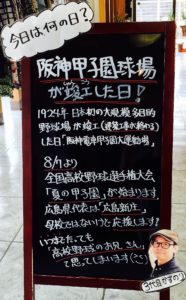 今日は何の日？
阪神甲子園球場
が竣工した日！
1924年 日本初の大規模多目的
野球場が竣工(建築工事が終わる)
した日"阪神電車甲子園大運動場"
8/1より
全国高校野球選手権大会
「夏の甲子園」が始まります
広島県代表は「広島新庄」
母校ではないけど応援します！
いつまでたっても
"高校野球のお兄さん"
て思てしまいます(笑)
3代目かずのり